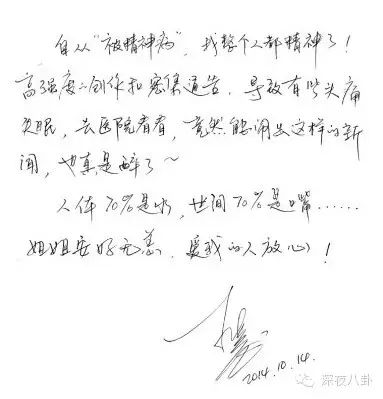 自从“被精神病”,我整个人都精神了!
高强度的创作和密集通告,导致有些头痛
失眠,去医院看看,竟然能闹出这样的新
闻,也真是醉了~
人体70%是水,世间70%是嘴……
姐姐安好无恙,爱我的人放心!
2014.10.14.
深夜八卦